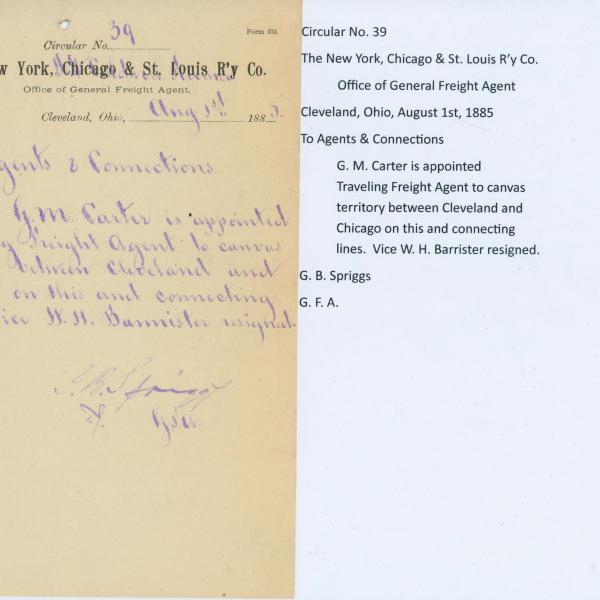 39
Form 252.
Circular No.
w York, Chicago & St. Louis R'y Co.
Office of General Freight Agent.
Cleveland, Ohio, Aug 1st 1885.
gents & Connections.
G. M. Carter is appointed
g Freight Agent to canvas
between Cleveland and
on this and connecting
ice W. H. Bannister resigned.
G. B. Spriggs
G.F.A.
Circular No. 39
The New York, Chicago & St. Louis R'y Co.
Office of General Freight Agent
Cleveland, Ohio, August 1st, 1885
To Agents & Connections
G. M. Carter is appointed
Traveling Freight Agent to canvas
territory between Cleveland and
Chicago on this and connecting
lines. Vice W. H. Barrister resigned.
G. B. Spriggs
G. F. A.